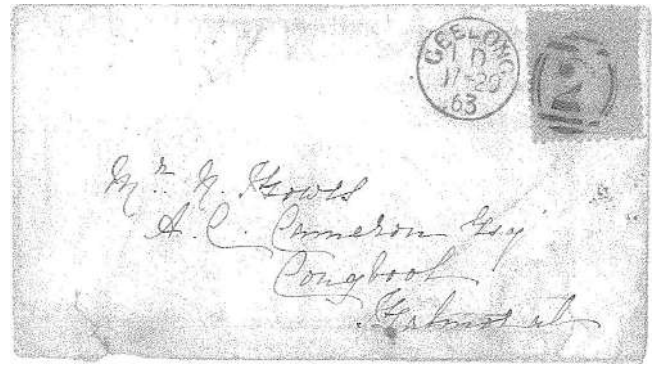 GEELONG
1 D
17-20
63
2
Mr. N. Howes
A. C. Cameron Esq
Congbool
Balmoral